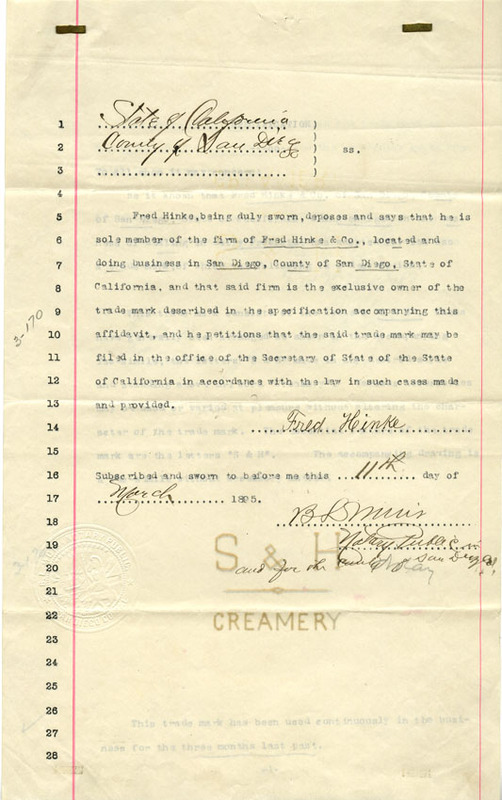 1 State of California )
2 County of San Diego ) ss.
3 )
4
5 Fred Hinke, being duly sworn, deposes and says that he is
6 sole member of the firm of Fred Hinke & Co., located and
7 doing business in San Diego, County of San Diego, State of
8 California, and that said firm is the exclusive owner of the
9 trade mark described in the specification accompanying this
10 affidavit, and he petitions that the said trade mark may be
11 filed in the office of the Secretary of State of the State
12 of California in accordance with the law in such cases made
13 and provided.
14 Fred Hinke
15
16 Subscribed and sworn to before me this 11th day of
17 March 1895.
18
19 Notary Public in
20 and for the County of San Diego
21
22
23
24
25
26
27
28
3-170
S & H
CREAMERY
This trade mark has been used continuously in the busi-
ness for the three months last past.